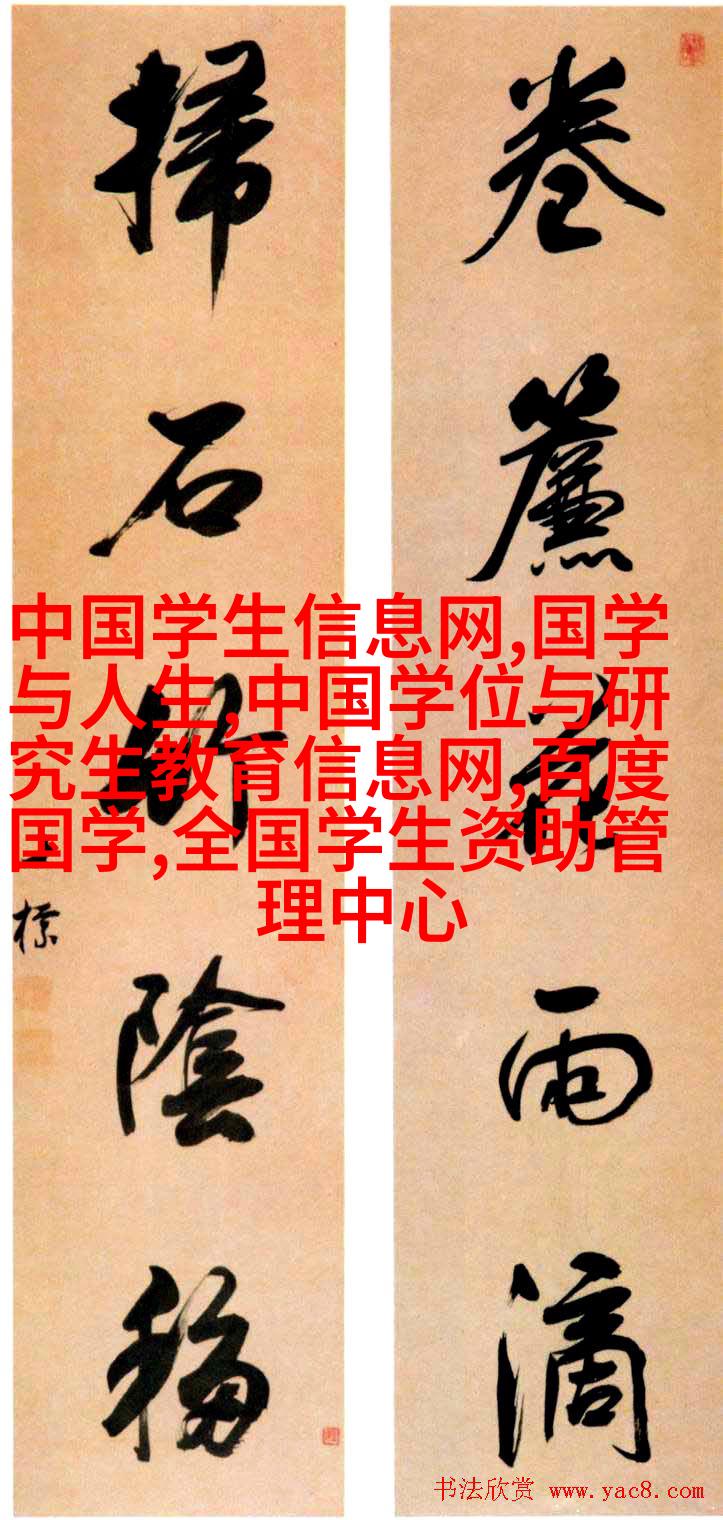 卷簾花雨滴
掃石竹陰移
標
中国学生信息网,国学
与人生,中国学位与研
究生教育信息网,百度
国学,全国学生资助管
理中心
书法欣赏 www.yac8.com